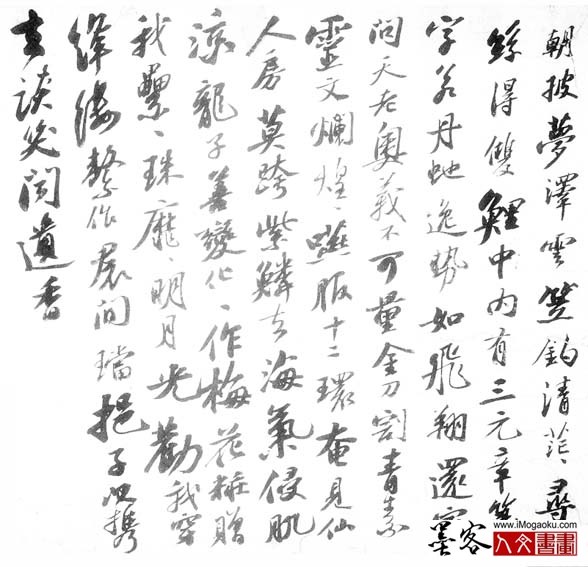 朝披夢澤雲笠釣清茫〻尋
絲得雙鯉中内有三元章篆
字若丹虵逸勢如飛翔還
問天老奧義不可量金刀割青素
靈文爛煌〻嚥服十二環奄見仙
人房莫跨紫鱗去海氣侵肌
涼龍子善變化〻作梅花粧贈
我纍〻珠靡〻明月光勸我穿
絳縷繫作裙間璫挹子以攜
去談笑聞遺香
www.iMogaoku.com
人文書畫